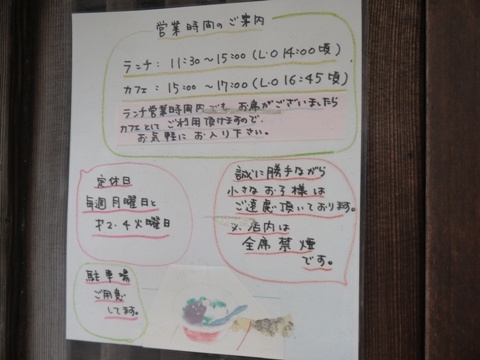 営業時間のご案内
ランチ： 11:30〜15:00 (L・O 14:00頃)
カフェ： 15:00〜17:00 (L・O 16:45頃)
ランチ営業時間内でも お席がございましたら
カフェとして ご利用頂けますので、
お気軽に お入り下さい。
定休日
毎週月曜日と
才2・4火曜日
誠に勝手ながら
小さなお子様は
ご遠慮頂いております。
又、店内は
全席禁煙
です。
駐車場
ご用意
してます。